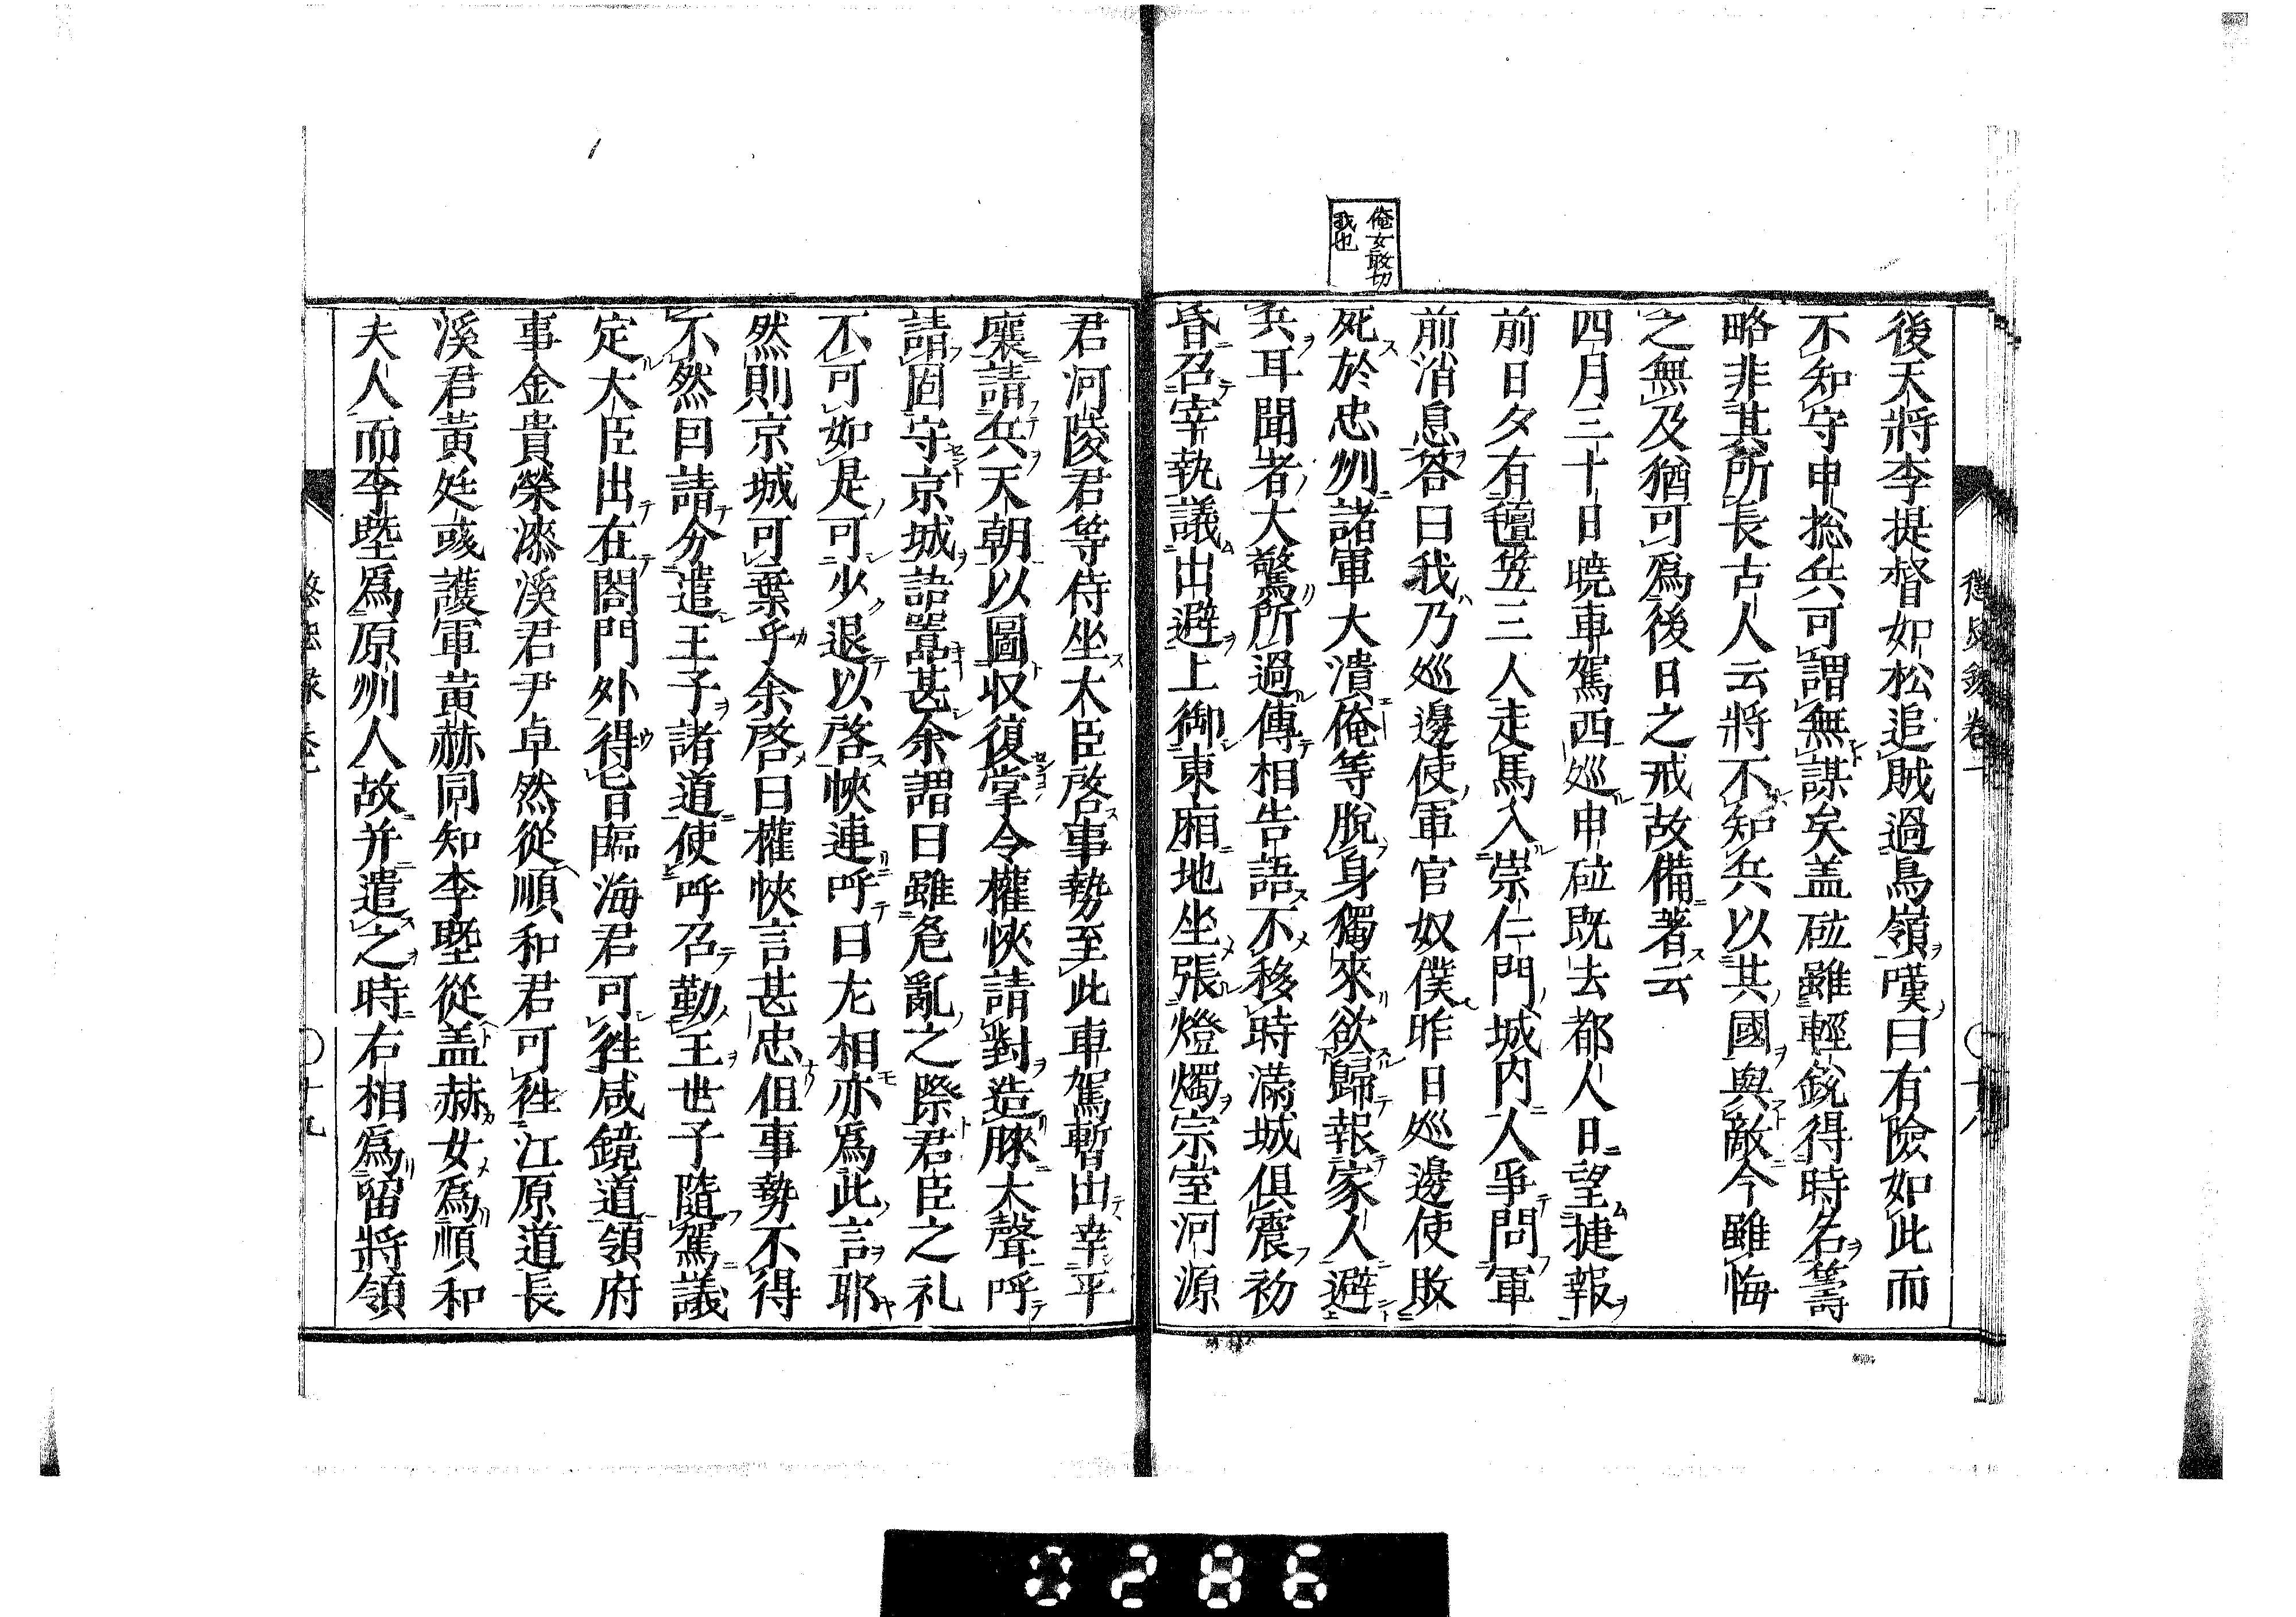 俺女敢切
我也
後天將李提督如松追賊過鳥嶺嘆曰有險如此而
不知守申捴兵可謂無謀矣盖砬雖輕銳得時名籌
略非其所長古人云將不知兵以其國與敵今雖悔
之無及猶可爲後日之戒故備著云
四月三十日曉車駕西巡申砬既去都人日望捷報
前日夕有氊笠三人走馬入崇仁門城內人爭問軍
前消息答曰我乃巡邊使軍官奴僕昨日巡邊使敗
死於忠州諸軍大潰俺等脫身獨來欲歸報家人避
兵耳聞者大驚所過傳相告語不移時滿城俱震初
昏召宰執議出避上御東廂地坐張燈燭宗室河源
君河陵君等侍坐大臣啓事勢至此車駕暫出幸平
壤請兵天朝以圖収復掌令權悏請對造膝大聲呼
請固守京城語嚚甚余謂曰雖危亂之際君臣之礼
不可如是可少退以啓悏連呼曰左相亦爲此言耶
然則京城可棄乎余啓曰權悏言甚忠但事勢不得
不然因請分遣王子諸道使呼召勤王世子隨駕議
定大臣出在閤門外得旨臨海君可徃咸鏡道領府
事金貴榮漆溪君尹卓然從順和君可徃江原道長
溪君黃廷彧護軍黃赫同知李墍從盖赫女爲順和
夫人而李墍爲原州人故并遣之時右相爲留將領
懲毖録卷一
〇十八
懲毖録卷一
〇十九
0286